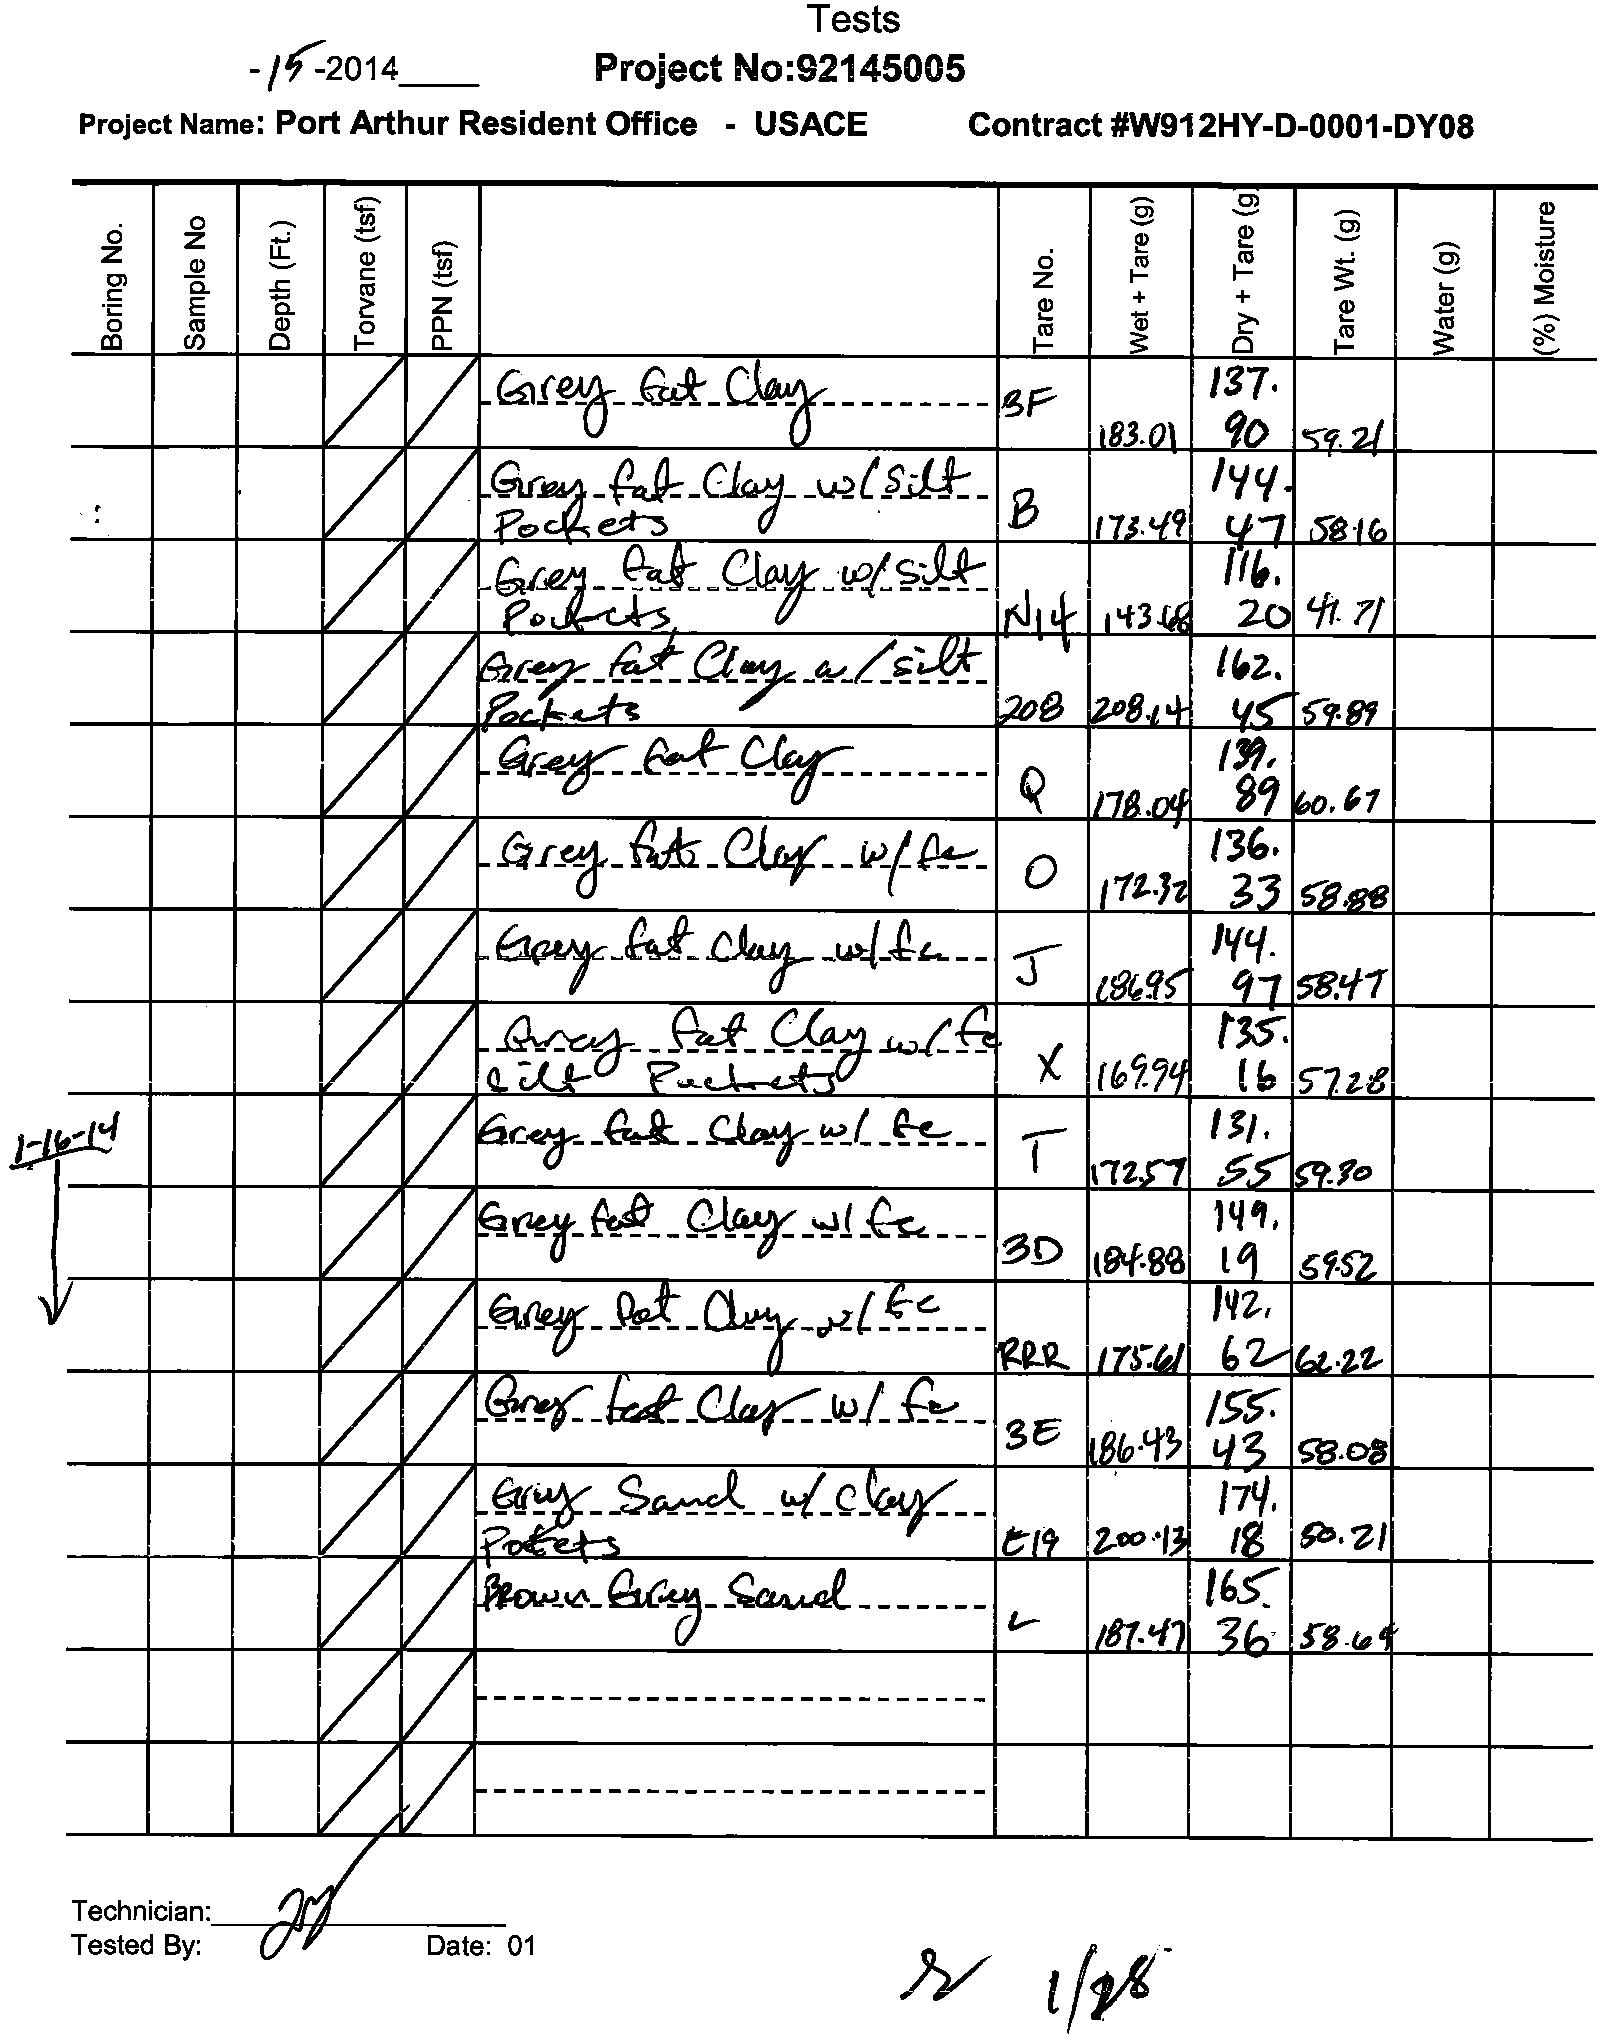 Tests
-15-2014____ Project No:92145005
Project Name: Port Arthur Resident Office - USACE Contract #W912HY-D-0001-DY08
Boring No. Sample No Depth (Ft.) Torvane (tsf) PPN (tsf) Tare No. Wet + Tare (g) Dry + Tare (g) Tare Wt. (g) Water (g) (%) Moisture
Grey fat Clay 3F 183.01 137.90 59.21
Grey fat Clay w/ Silt
Pockets B 173.49 144.47 58.16
Grey fat Clay w/ silt
Pockets N14 143.68 116.20 41.71
Grey fat Clay w/ silt
Pockets 208 208.14 162.45 59.89
Grey fat Clay Q 178.04 139.89 60.67
Grey fat Clay w/ fe O 172.32 136.33 58.88
Grey fat Clay w/ fe J 186.95 144.97 58.47
Grey fat Clay w/ fe
silt Pockets X 169.94 135.16 57.28
1-16-14
Grey fat Clay w/ fe T 172.57 131.55 59.30
Grey fat Clay w/ fe 3D 184.88 149.19 59.52
Grey fat Clay w/ fe RRR 175.61 142.62 62.22
Grey fat Clay w/ fe 3E 186.43 155.43 58.08
Grey Sand w/ clay
Pockets E19 200.13 174.18 50.21
Brown Grey Sand L 187.47 165.36 58.64
Technician:
Tested By: Date: 01
1/28